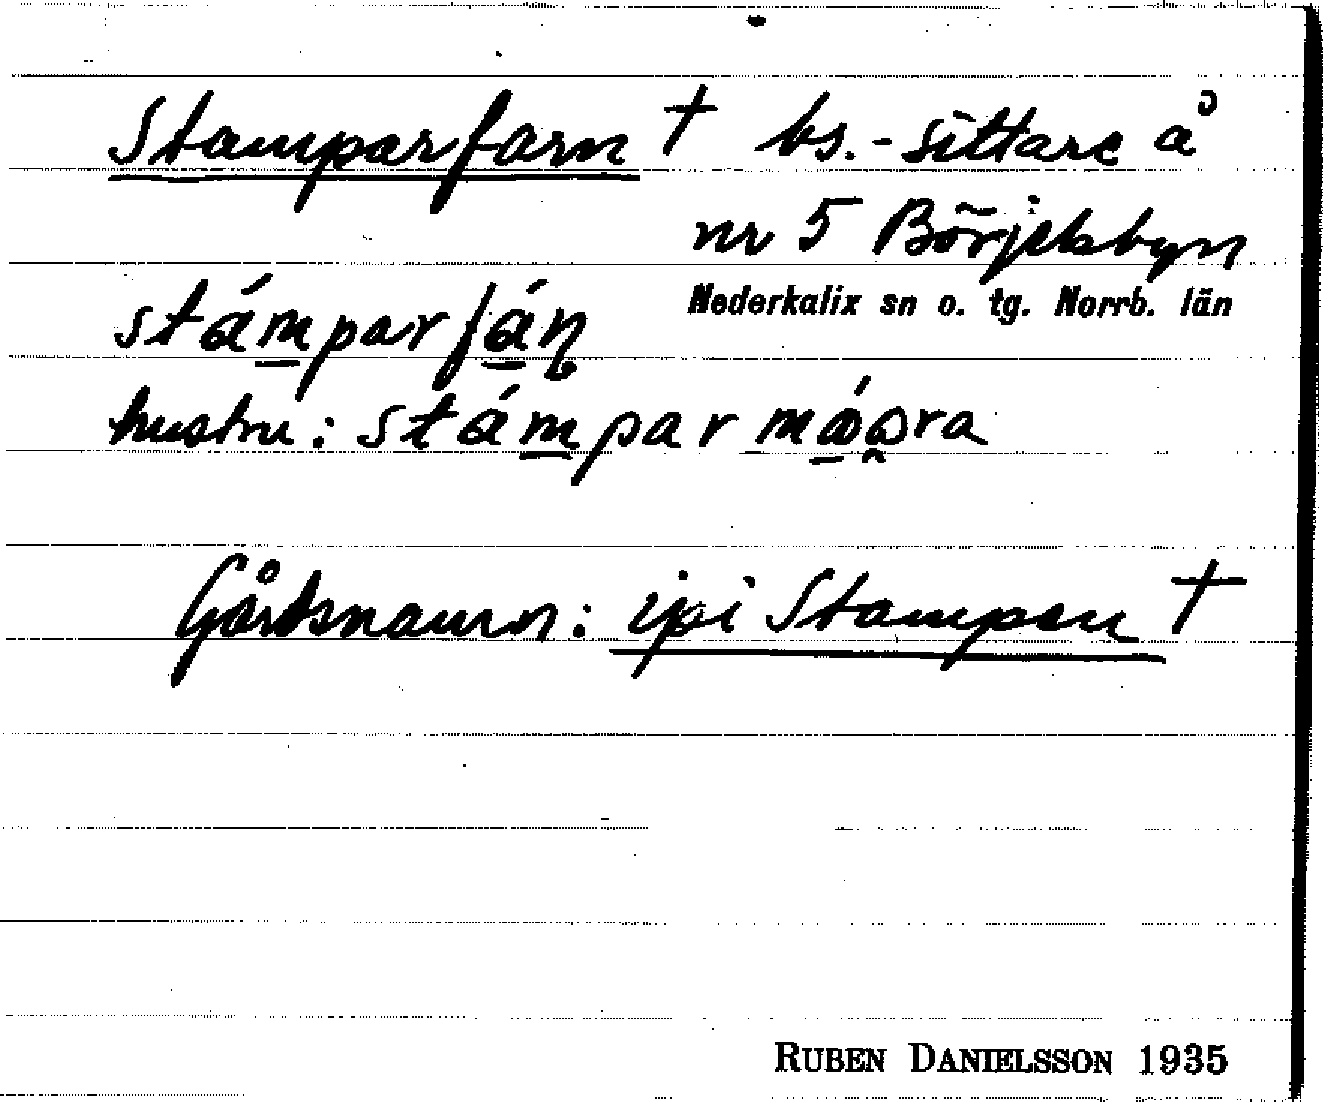 Stamparfarn † bs.-sittare å
nr 5 Börjelsbyn
Nederkalix sn o. tg. Norrb. län
stámparfáṇ
hustru: stámparmóora
Gårdsnamn: ipi Stampen †
RUBEN DANIELSSON 1935